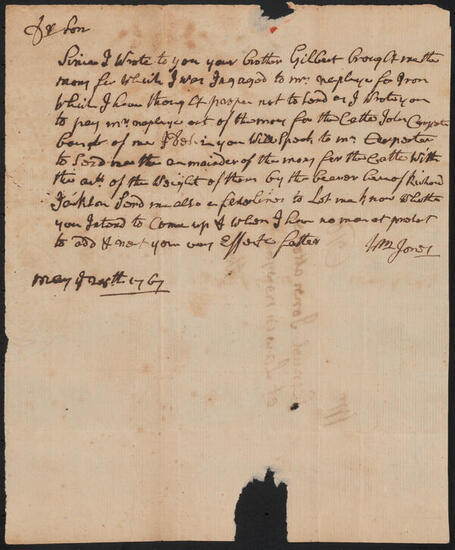 Dr Son
Since I Wrote to you your brother Gilbert brought me the
mony for Which I was Ingaged to mr neplaye for Iron
Which I have thought proper not to send as I Wrote you
to pay mr neplaye out of the mony for the Cattle John Carpenter
bought of me I desire you Will Speak to mr Carpenter
to Send me the remainder of the mony for the Cattle With
the actt of the Weight of them by the bearer hereof Richard
Jackson Send me also a few lines to Let me know Whether
you Intend to Come up & When I have no more at prest
to add & rest your very Affecte father
Wm Jones
may ye 25th 1767